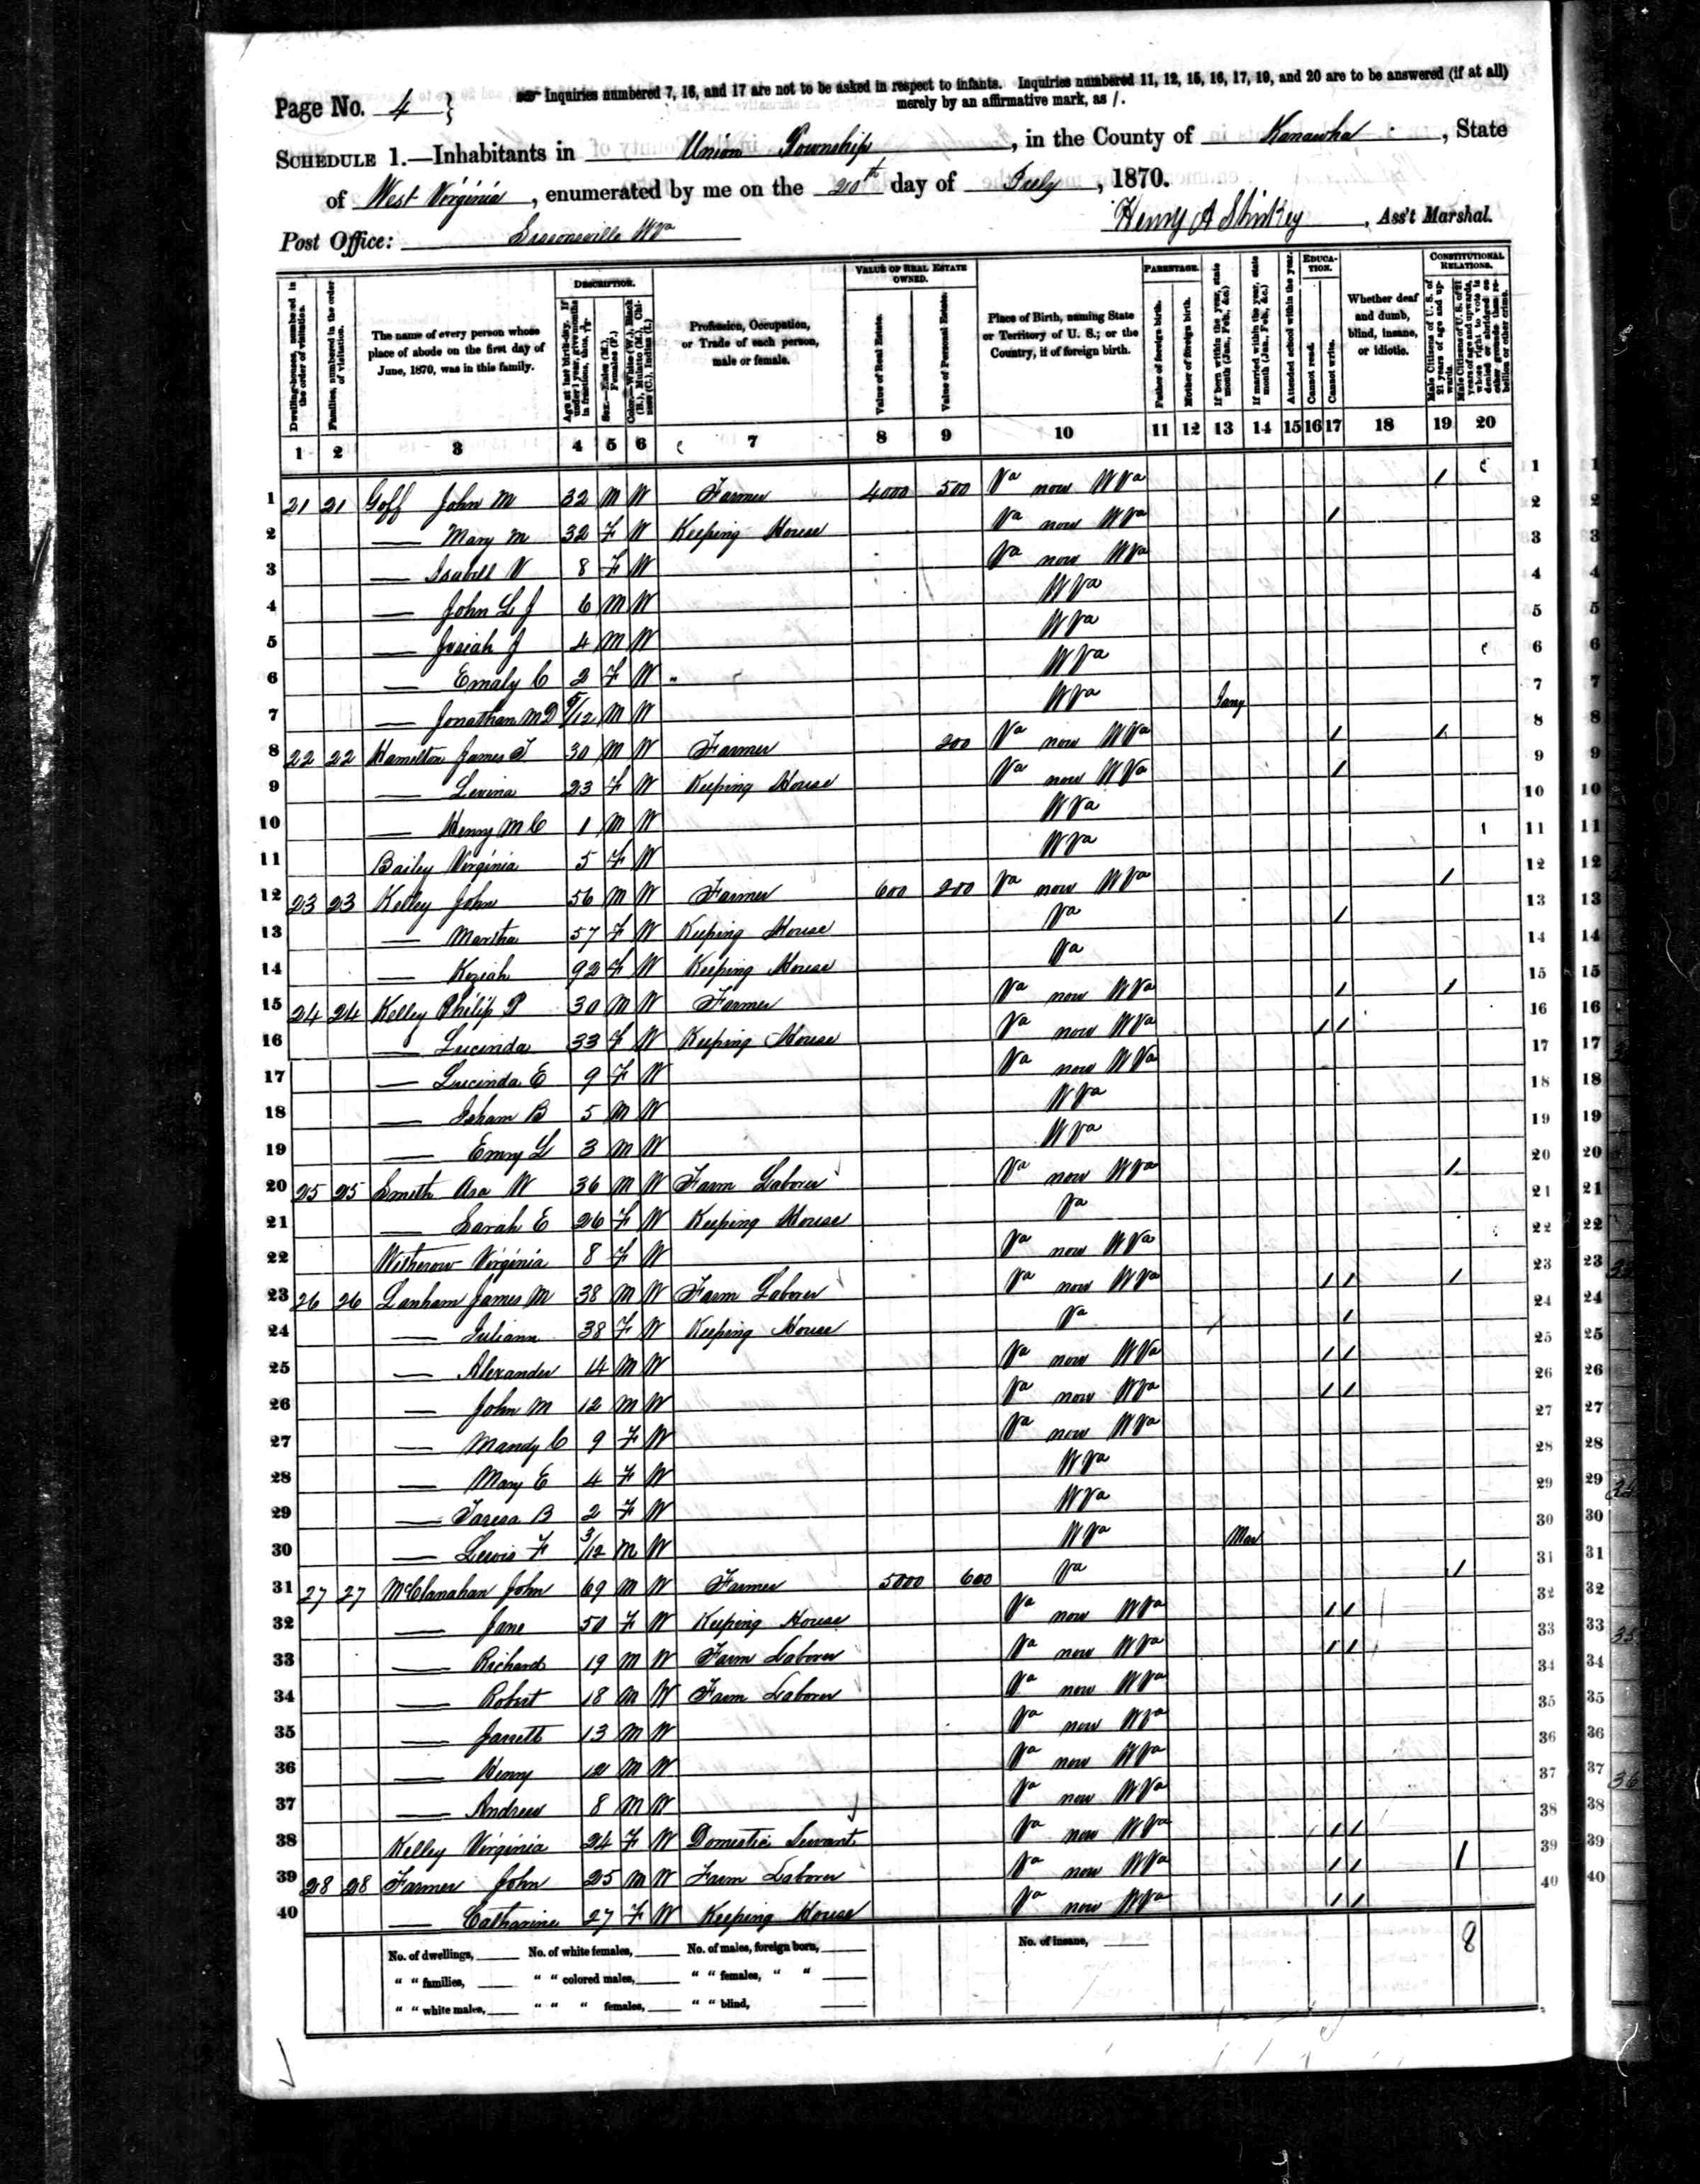 Page No. 4 }
Inquiries numbered 7, 16, and 17 are not to be asked in respect to infants. Inquiries numbered 11, 12, 15, 16, 17, 19, and 20 are to be answered (if at all)
merely by an affirmative mark, as /.
SCHEDULE 1.—Inhabitants in Union Township, in the County of Kanawha, State
of West Virginia, enumerated by me on the 20th day of July, 1870.
Post Office: Sissonsville WVa
Henry A Shirkey, Ass't Marshal.
Dwelling-houses, numbered in the order of visitation.
Families, numbered in the order of visitation.
The name of every person whose place of abode on the first day of June, 1870, was in this family.
DESCRIPTION.
Age at last birth-day. If under 1 year, give months in fractions, thus, 3/12
Sex.—Males (M.), Females (F.)
Color.—White (W.), Black (B.), Mulatto (M.), Chinese (C.), Indian (I.)
Profession, Occupation, or Trade of each person, male or female.
VALUE OF REAL ESTATE OWNED.
Value of Real Estate.
Value of Personal Estate.
Place of Birth, naming State or Territory of U. S.; or the Country, if of foreign birth.
PARENTAGE.
Father of foreign birth.
Mother of foreign birth.
If born within the year, state month (Jan., Feb., &c.)
If married within the year, state month (Jan., Feb., &c.)
EDUCATION.
Attended school within the year.
Cannot read.
Cannot write.
Whether deaf and dumb, blind, insane, or idiotic.
CONSTITUTIONAL RELATIONS.
Male Citizens of U. S. of 21 years of age and upwards.
Male Citizens of U. S. of 21 years of age and upwards, whose right to vote is denied or abridged on other grounds than rebellion or other crime.
1 2 3 4 5 6 7 8 9 10 11 12 13 14 15 16 17 18 19 20
1 21 21 Goff John M 32 M W Farmer 4000 500 Va now WVa / 1
2 — Mary M 32 F W Keeping House Va now WVa / 2
3 — Isabell V 8 F W Va now WVa 3
4 — John L J 6 M W WVa 4
5 — Josiah J 4 M W WVa 5
6 — Emaly C 2 F W WVa 6
7 — Jonathan M D 5/12 M W WVa Jany 7
8 22 22 Hamilton James T 30 M W Farmer 200 Va now WVa / / 8
9 — Levina 23 F W Keeping House Va now WVa / 9
10 — Henry M C 1 M W WVa 10
11 Bailey Virginia 5 F W WVa 11
12 23 23 Kelley John 56 M W Farmer 600 200 Va now WVa / 12
13 — Martha 57 F W Keeping House Va / 13
14 — Keziah 92 F W Keeping House Va 14
15 24 24 Kelley Philip P 30 M W Farmer Va now WVa / / 15
16 — Lucinda 33 F W Keeping House Va now WVa / / 16
17 — Lucinda E 9 F W Va now WVa 17
18 — Isham B 5 M W WVa 18
19 — Emry L 3 M W WVa 19
20 25 25 Smith Asa W 36 M W Farm Laborer Va now WVa / 20
21 — Sarah E 26 F W Keeping House Va 21
22 Witherow Virginia 8 F W Va now WVa 22
23 26 26 Lanham James M 38 M W Farm Laborer Va now WVa / / / 23
24 — Juliann 38 F W Keeping House Va / 24
25 — Alexander 14 M W Va now WVa / / 25
26 — John M 12 M W Va now WVa / / 26
27 — Mandy C 9 F W Va now WVa 27
28 — Mary E 4 F W WVa 28
29 — Taresa B 2 F W WVa 29
30 — Lewis F 3/12 M W WVa Mar 30
31 27 27 McClanahan John 69 M W Farmer 5000 600 Va / 31
32 — Jane 50 F W Keeping House Va now WVa / / 32
33 — Richard 19 M W Farm Laborer Va now WVa / / 33
34 — Robert 18 M W Farm Laborer Va now WVa 34
35 — Jarrett 13 M W Va now WVa 35
36 — Henry 12 M W Va now WVa 36
37 — Andrew 8 M W Va now WVa 37
38 Kelley Virginia 24 F W Domestic Servant Va now WVa / / 38
39 28 28 Farmer John 25 M W Farm Laborer Va now WVa / / / 39
40 — Catharine 27 F W Keeping House Va now WVa / / 40
No. of dwellings, No. of white females, No. of males, foreign born, No. of insane, 8
" " families, " " colored males, " " females, " "
" " white males, " " " females, " " blind,